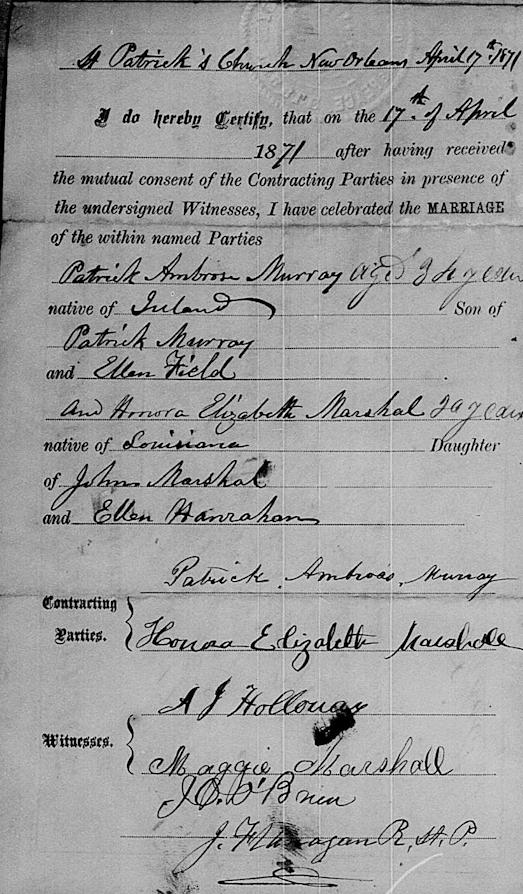 St Patrick's Church New Orleans April 17th 1871
I do hereby Certify, that on the 17th of April
1871 after having received
the mutual consent of the Contracting Parties in presence of
the undersigned Witnesses, I have celebrated the MARRIAGE
of the within named Parties
Patrick Ambrose Murray aged years
native of Ireland Son of
Patrick Murray
and Ellen Field
And Honora Elizabeth Marshal years
native of Louisiana Daughter
of John Marshal
and Ellen Hanrahan
Patrick Ambrose Murray
Contracting
Parties.
Honora Elizabeth Marshall
A J Holloway
Witnesses.
Maggie Marshall
J. O'Brien
J. Flanagan R. St. P.